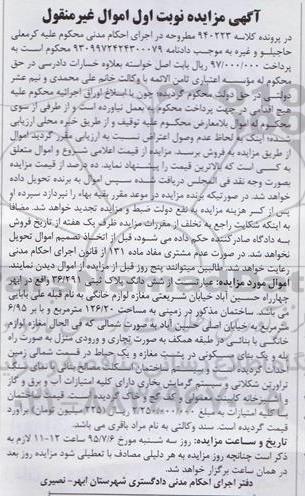 آگهی مزایده نوبت اول اموال غیرمنقول
در پرونده کلاسه ۹۴۰۲۲۳ مطروحه در اجرای احکام مدنی محکوم علیه کرمعلی
حاجیلو و غیره به موجب دادنامه ۹۳۰۹۹۷۲۴۲۴۳۰۰۰۷۹ محکوم است به
پرداخت ۹۷/۰۰۰/۰۰۰ ریال بابت اصل خواسته بعلاوه خسارات دادرسی در حق
محکوم له مؤسسه اعتباری ثامن الائمه با وکالت خانم علی محمدی و نیم عشر
دولتی در حق دولت محکوم گردیده چون با ابلاغ اوراق اجرائیه محکوم علیه
هیچ اقدامی در جهت پرداخت محکوم به بعمل نیاورده است و از طرفی از سوی
محکوم له اموال بلامعارض محکوم علیه توقیف و از طریق خبره محلی ارزیابی
شده؛ اینک با لحاظ عدم وصول اعتراض نسبت به ارزیابی مقرر گردید اموال
از طریق مزایده به فروش برسد. مزایده از قیمت اعلامی شروع و اموال متعلق
به کسی است که بالاترین قیمت را پیشنهاد نماید. ده درصد از قیمت مزایده
بصورت وجه نقد فی المجلس دریافت شده سپس اموال به برنده تحویل داده
خواهد شد. در صورتیکه برنده مزایده در موعد مقرر بقیه بهاء را نپردازد سپرده او
پس از کسر هزینه مزایده به نفع دولت ضبط و مزایده تجدید خواهد شد. مضافا
به اینکه شکایت راجع به تخلف از مقررات مزایده ظرف یک هفته از تاریخ فروش
به دادگاه صادرکننده حکم داده می شود، قبل از اتخاذ تصمیم اموال تحویل
نخواهد شد. در صورت عدم مشتری مفاد ماده ۱۳۱ از قانون اجرای احکام مدنی
رعایت خواهد شد. طالبین میتوانند پنج روز قبل از مزایده از اموال دیدن نمایند.
اموال مورد مزایده: عبارتست از شش دانگ پلاک ثبتی ۳۶/۲۹۱ واقع در ابهر
چهارراه حسین آباد خیابان شریعتی مغازه لوازم خانگی به نام قبله علی بابایی
می باشد. ساختمان مذکور در زمینی به مساحت ۱۲۶/۲۰ مترمربع و با بر ۶/۹۵
مترمربع به خیابان اصلی حسین آباد به صورت شمالی که فی الحال مغازه لوازم
خانگی با بنائی در طبقه همکف به صورت تجاری و ورودی منزل به صورت راه
پله و یک بنای مسکونی در پشت مغازه و یک حیاط در قسمت شمالی زمین
احداث گردیده است و سیستم ساختمان
تراورتن شکلاتی و سیستم گرمایش بخاری دارای کلیه امتیازات آب و برق و گاز
و آشپزخانه کابینت معمولی و کف
با کلیه امتیازات به مبلغ ۲/۲۵۰/۰۰۰/۰۰۰ ریال (۲۲۵ میلیون تومان) برآورد
قیمت گردیده است. سند وکالتی به نام مراد باقری می باشد.
تاریخ و ساعت مزایده: روز سه شنبه مورخ ۹۵/۷/۶ ساعت ۱۲-۱۱ لازم به
ذکر است چنانچه روز مزایده به هر دلیلی مصادف با تعطیلی شود مزایده روز بعد
در همان ساعت برگزار خواهد شد.
دفتر اجرای احکام مدنی دادگستری شهرستان ابهر- نصیری